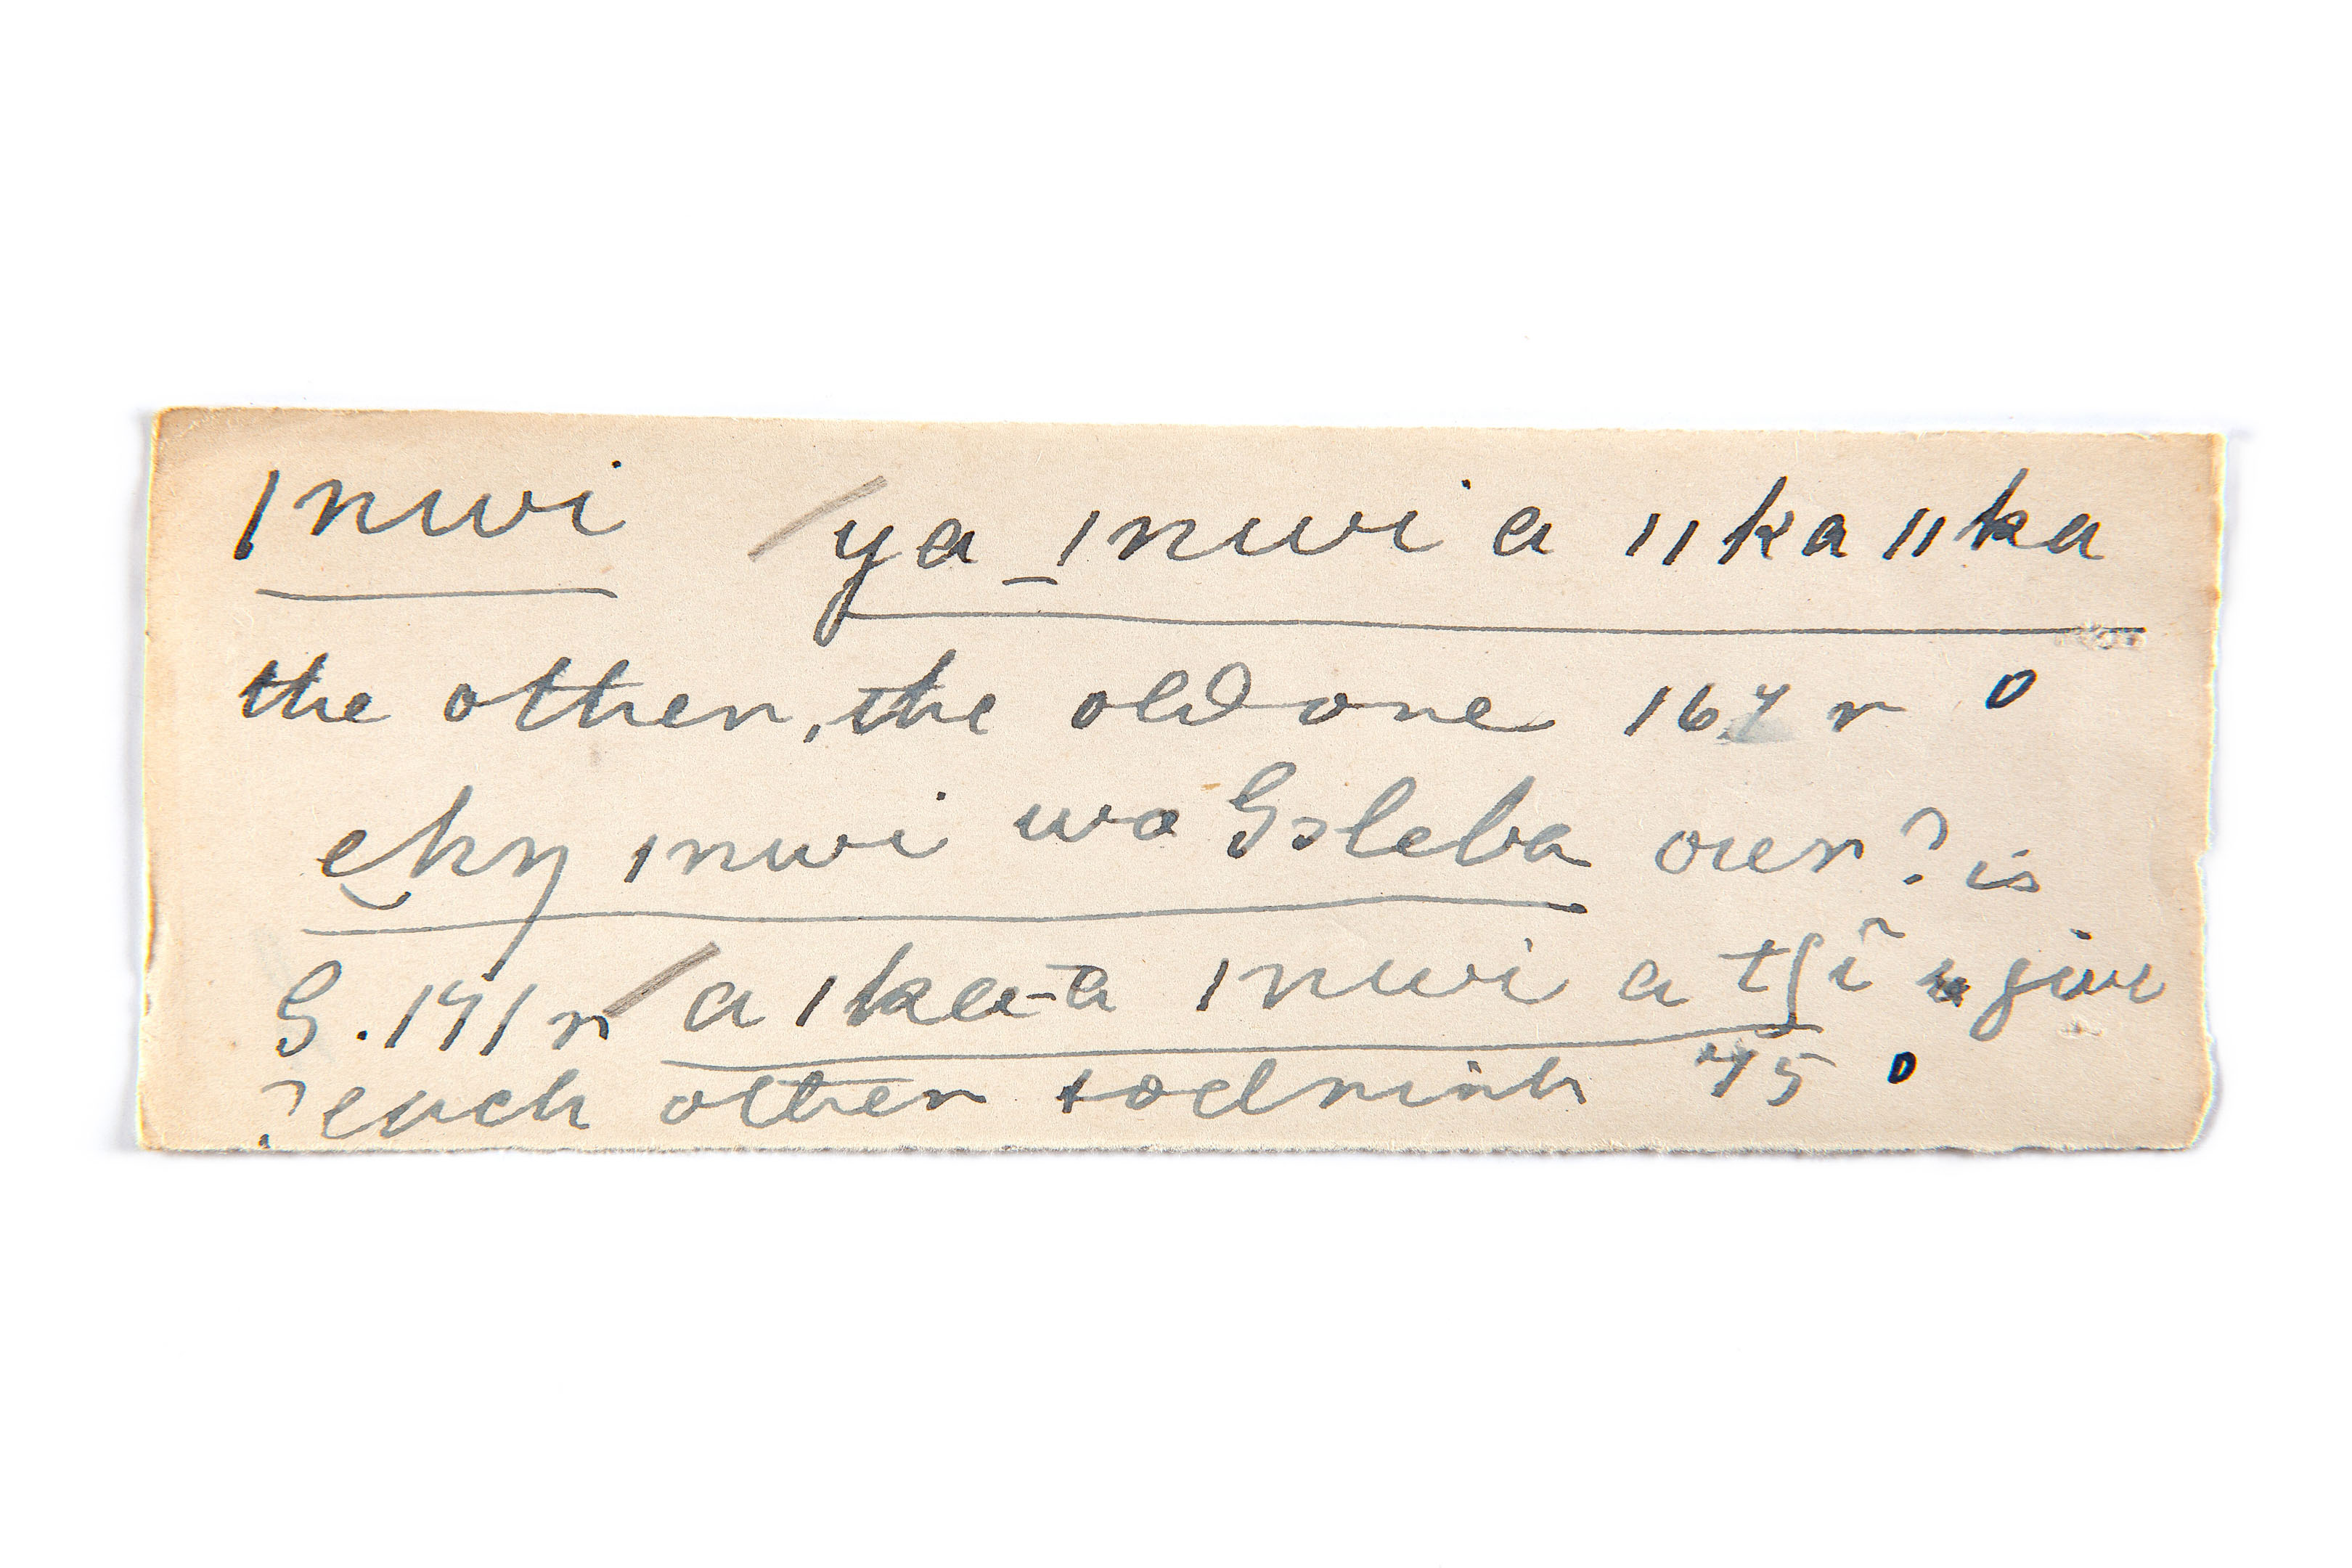 ǀnwi / ya _ ǀnwi a ǁka ǁka
the other, the old one 167 r 0
ehŋ ǀnwi wa Gsleba our? is
G. 191 r / a ǀka-a ǀnwi a tʃĩ u give
? each other to drink 75 0